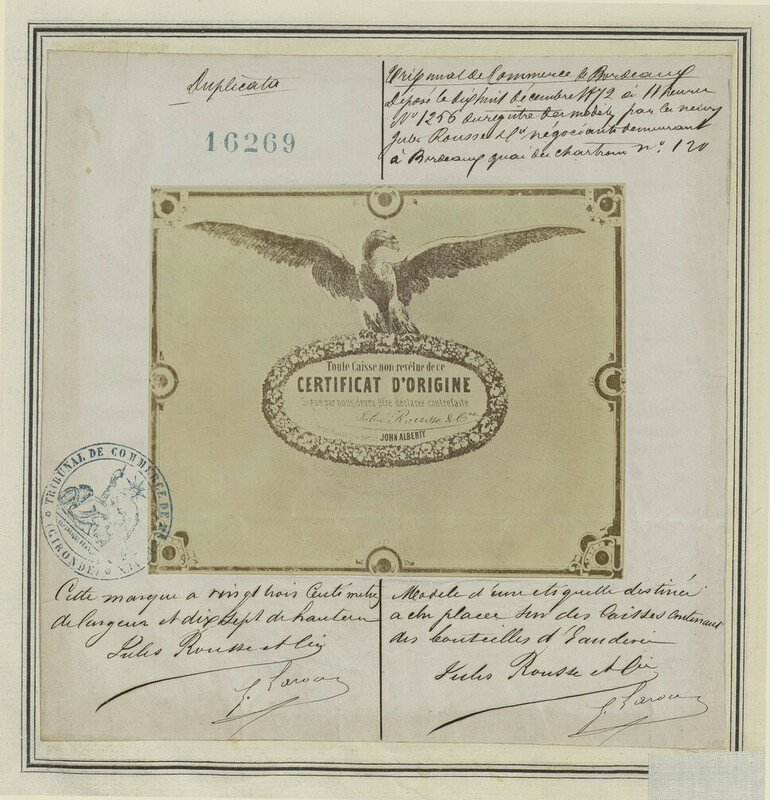 Duplicata
16269
Tribunal de Commerce de Bordeaux
Déposé le dix huit décembre 1872 à 11 heures
No 1256 du registre des modèles par les sieurs
Jules Rousse & Cie négociants demeurant
à Bordeaux quai des chartrons no. 120
Toute Caisse non revêtue de ce
CERTIFICAT D'ORIGINE
Signé par nous, devra être déclarée contrefaite
Jules Rousse & Cie
JOHN ALBERTY
TRIBUNAL DE COMMERCE DE
(GIRONDE)
Cette marque a vingt trois Centimetre
de largeur et dix sept de hauteur
Jules Rousse et Cie
Modele d'une etiquette destinée
a etre placer sur des Caisses contenant
des bouteilles d'Eau de vie
Jules Rousse et Cie